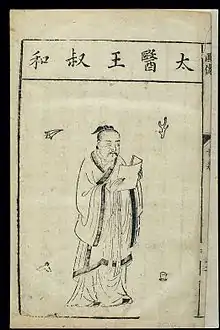 太醫王叔和